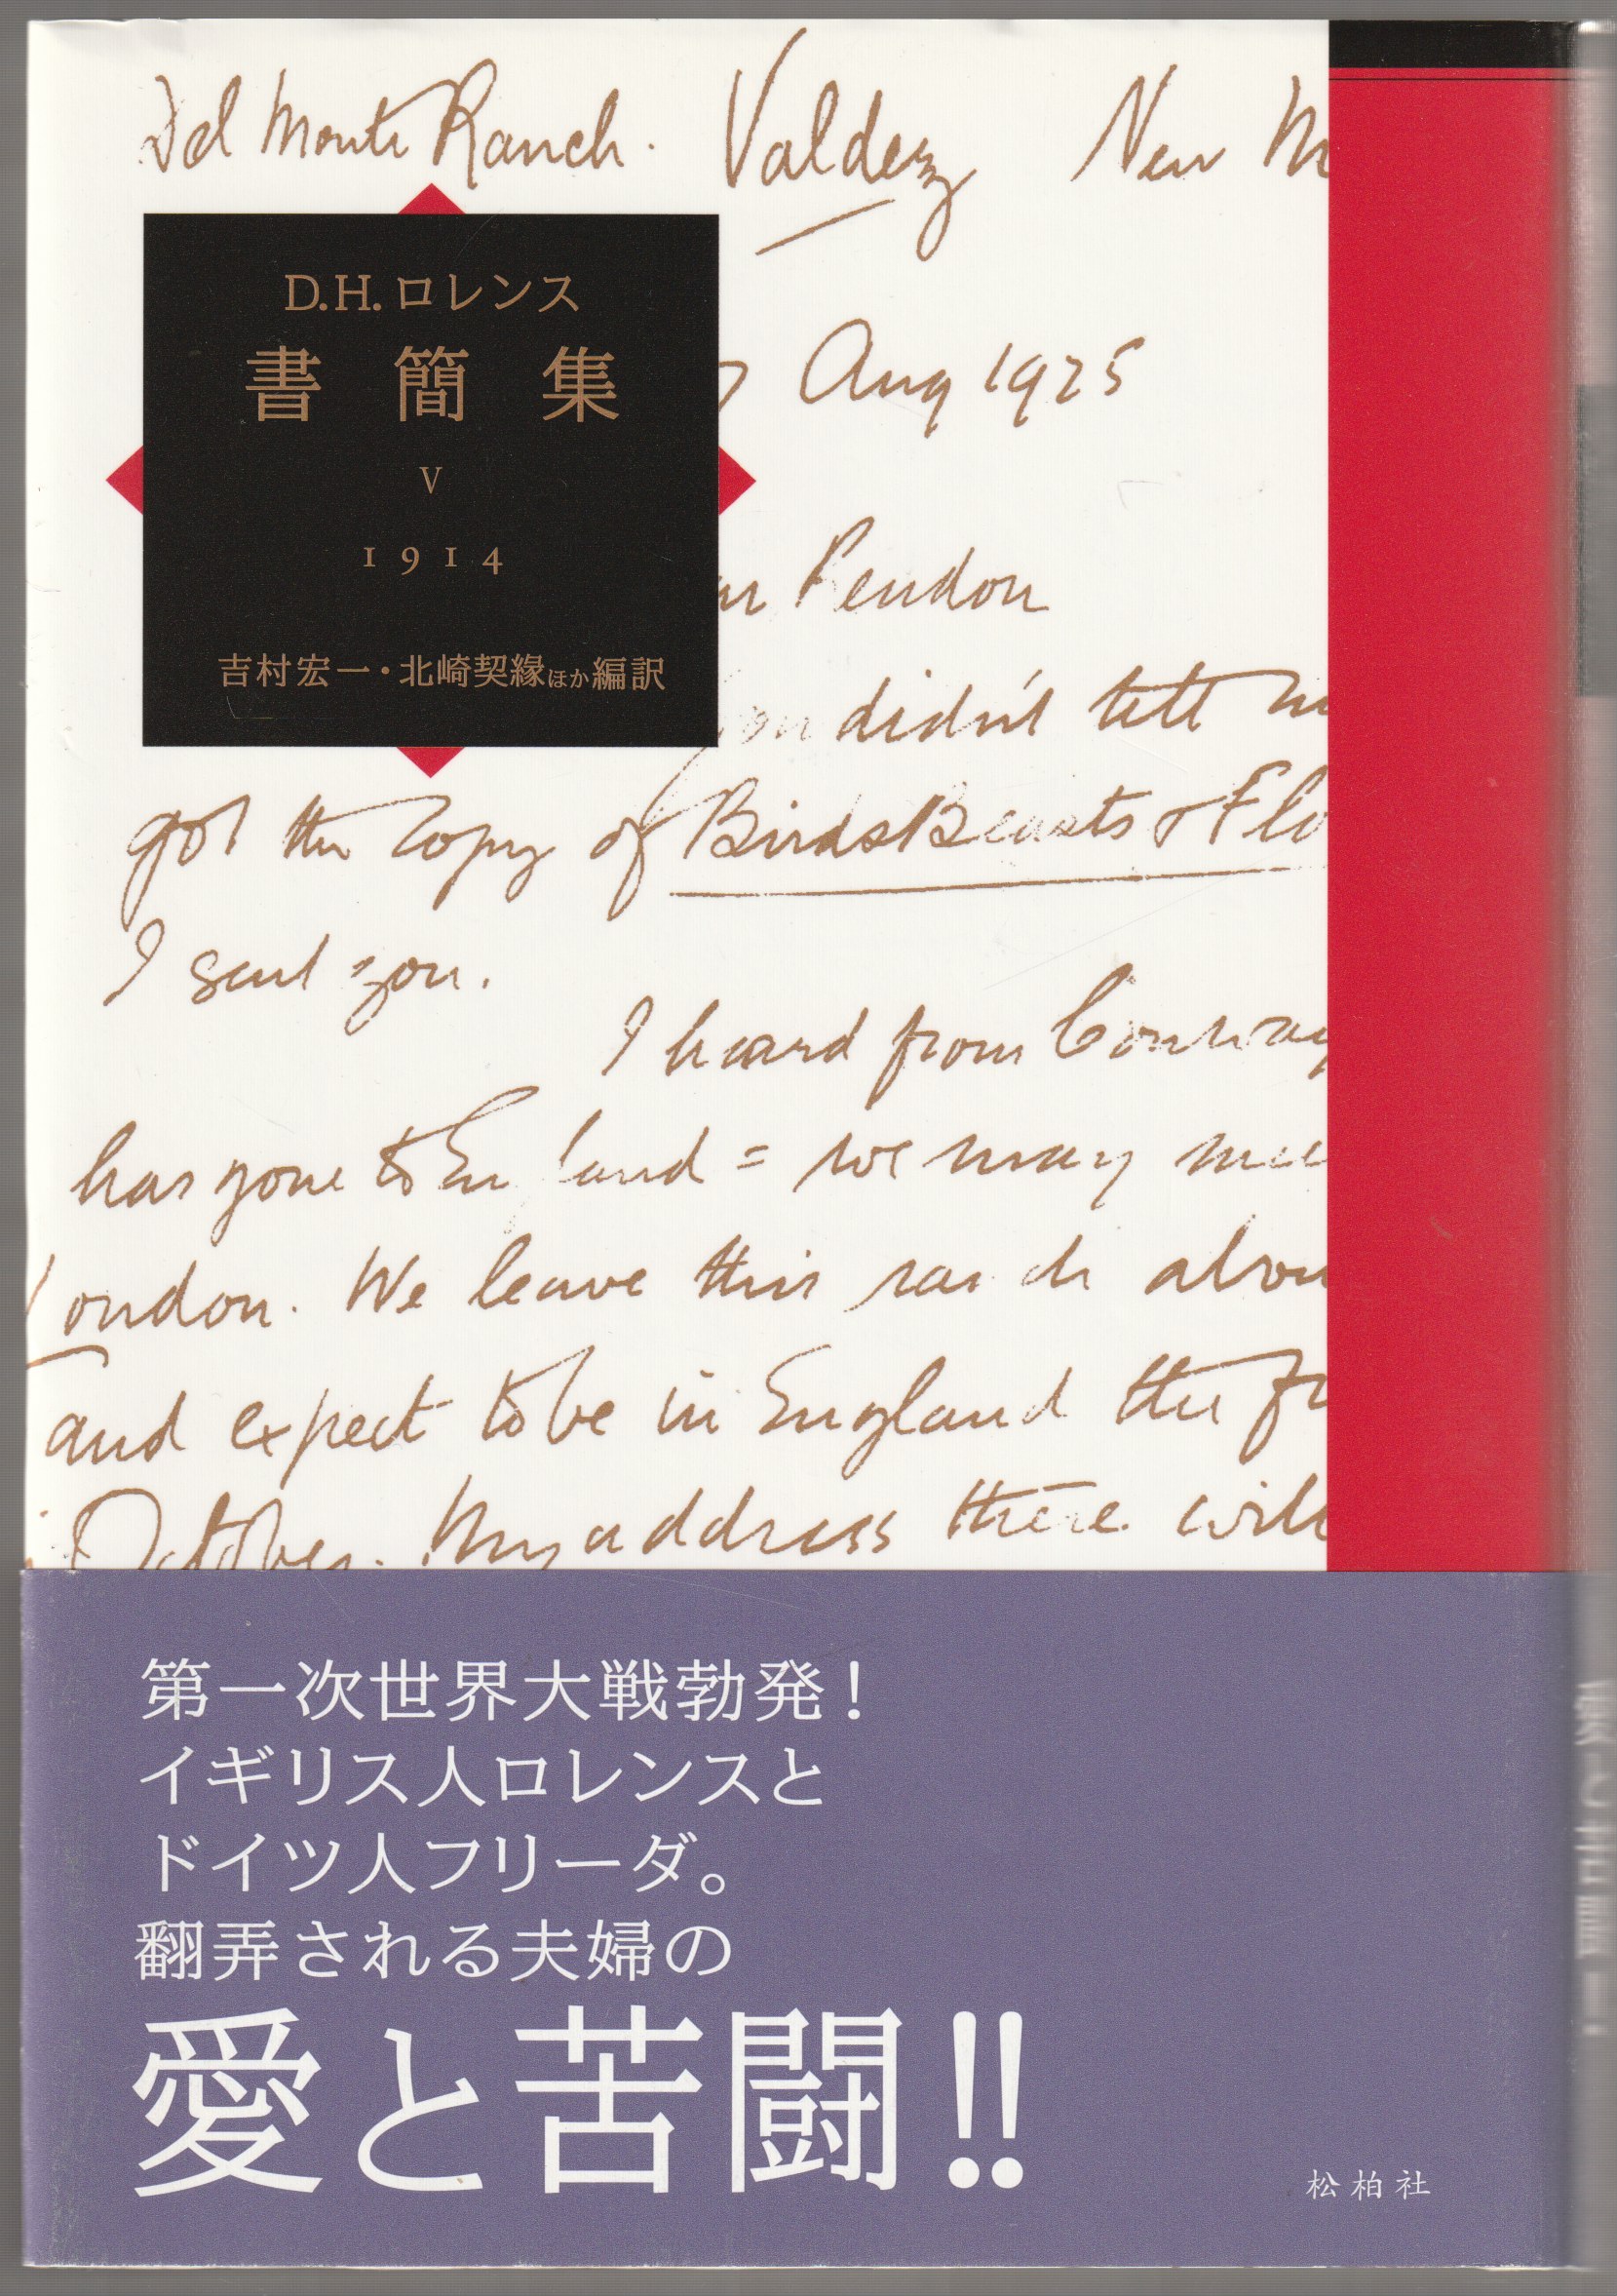 Del Monte Ranch. Valdez New M
D.H.ロレンス
書簡集
V
1914
吉村宏一・北崎契縁ほか編訳
Aug 1925
didn't tell
got the copy of Birds Beasts & Flo
I sent you.
I heard from Conway
has gone to England = we may mee
London. We leave this ranch abou
and expect to be in England the fi
October. My address there will
第一次世界大戦勃発!
イギリス人ロレンスと
ドイツ人フリーダ。
翻弄される夫婦の
愛と苦闘!!
松柏社